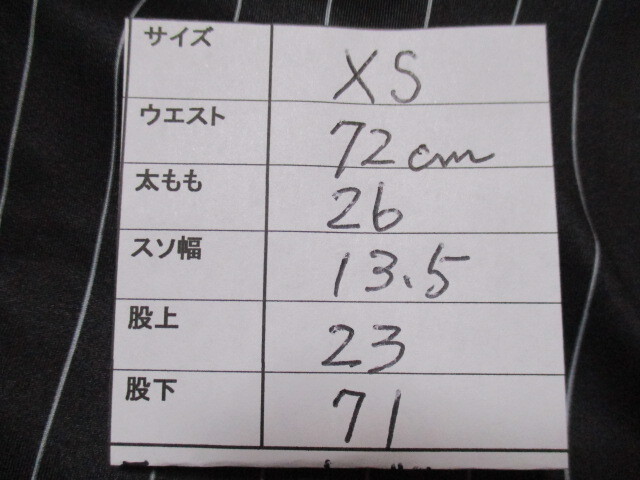 サイズ XS
ウエスト 72cm
太もも 26
スソ幅 13.5
股上 23
股下 71